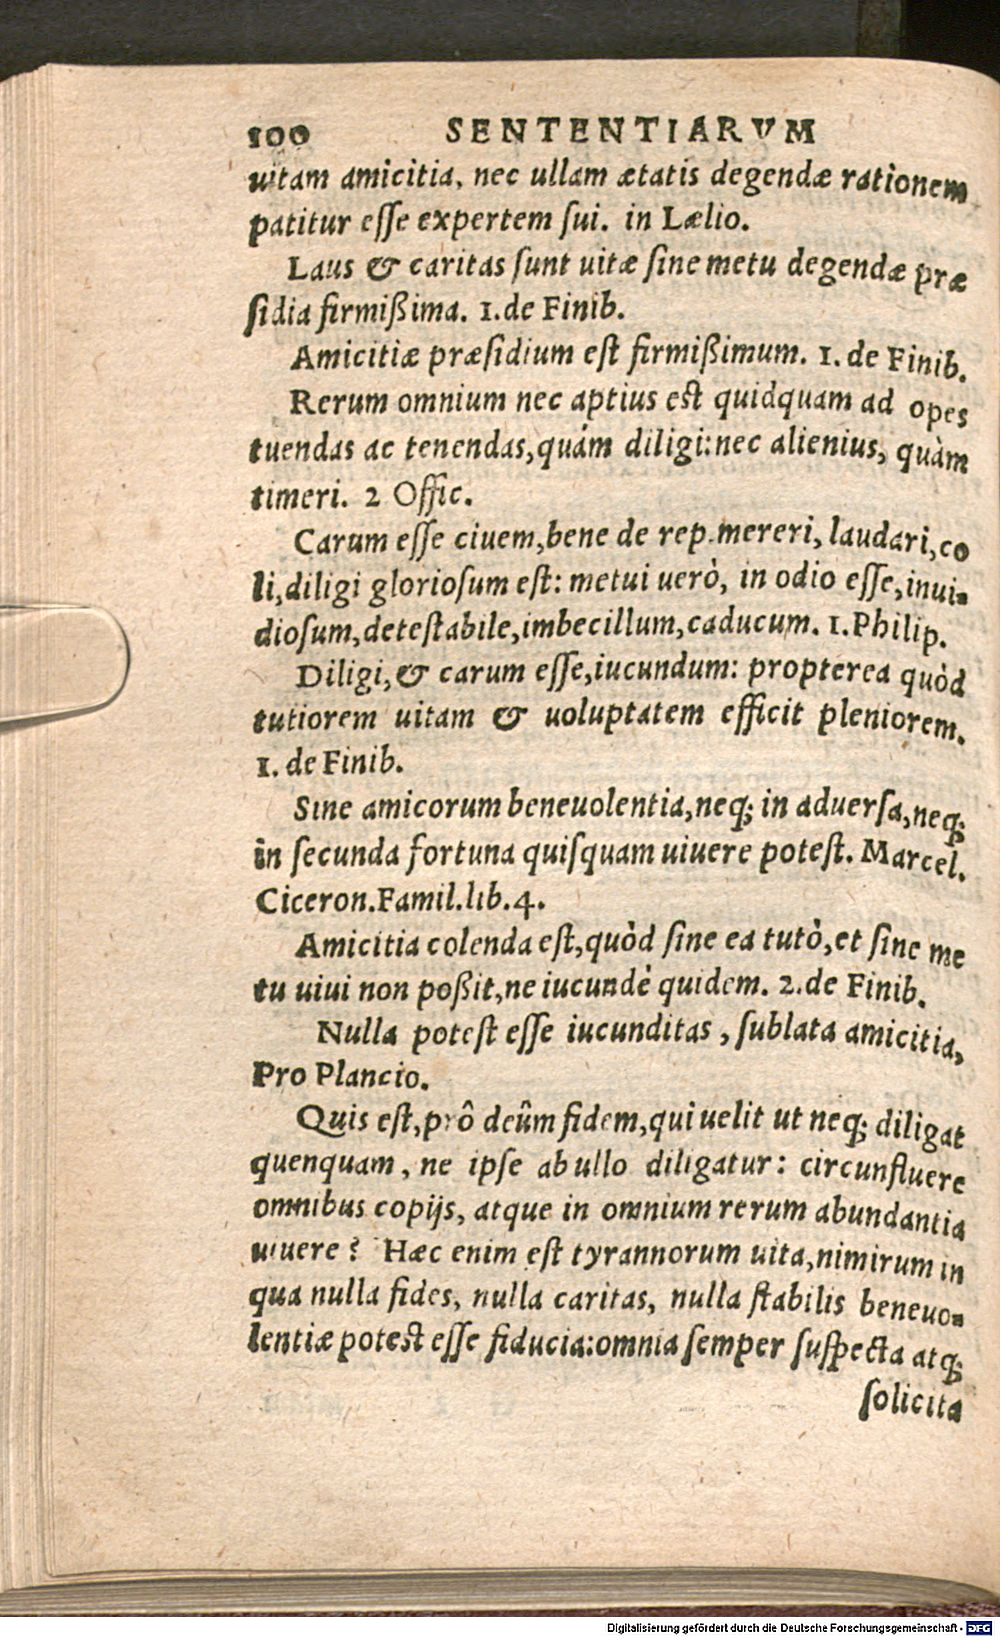 100 SENTENTIARVM
uitam amicitia, nec ullam ætatis degendæ rationem
patitur eſſe expertem ſui. in Lælio.
Laus & caritas ſunt uitæ ſine metu degendæ præ
ſidia firmißima. 1. de Finib.
Amicitiæ præſidium eſt firmißimum. 1. de Finib.
Rerum omnium nec aptius est quidquam ad opes
tuendas ac tenendas, quám diligi: nec alienius, quàm
timeri. 2 Offic.
Carum eſſe ciuem, bene de rep. mereri, laudari, co
li, diligi glorioſum eſt: metui uerò, in odio eſſe, inui-
dioſum, deteſtabile, imbecillum, caducum. 1. Philip.
Diligi, & carum eſſe, iucundum: propterea quòd
tutiorem uitam & uoluptatem efficit pleniorem.
1. de Finib.
Sine amicorum beneuolentia, neq; in aduerſa, neq;
in ſecunda fortuna quiſquam uiuere poteſt. Marcel.
Ciceron. Famil. lib. 4.
Amicitia colenda eſt, quòd ſine ea tutò, et ſine me
tu uiui non poßit, ne iucundè quidem. 2. de Finib.
Nulla poteſt eſſe iucunditas, ſublata amicitia,
Pro Plancio.
Quis eſt, prô deûm fidem, qui uelit ut neq; diligat
quenquam, ne ipſe ab ullo diligatur: circunfluere
omnibus copijs, atque in omnium rerum abundantia
uiuere? Hæc enim eſt tyrannorum uita, nimirum in
qua nulla fides, nulla caritas, nulla ſtabilis beneuo-
lentiæ potest eſſe fiducia: omnia ſemper ſuſpecta atq;
ſolicita
Digitalisierung gefördert durch die Deutsche Forschungsgemeinschaft - DFG